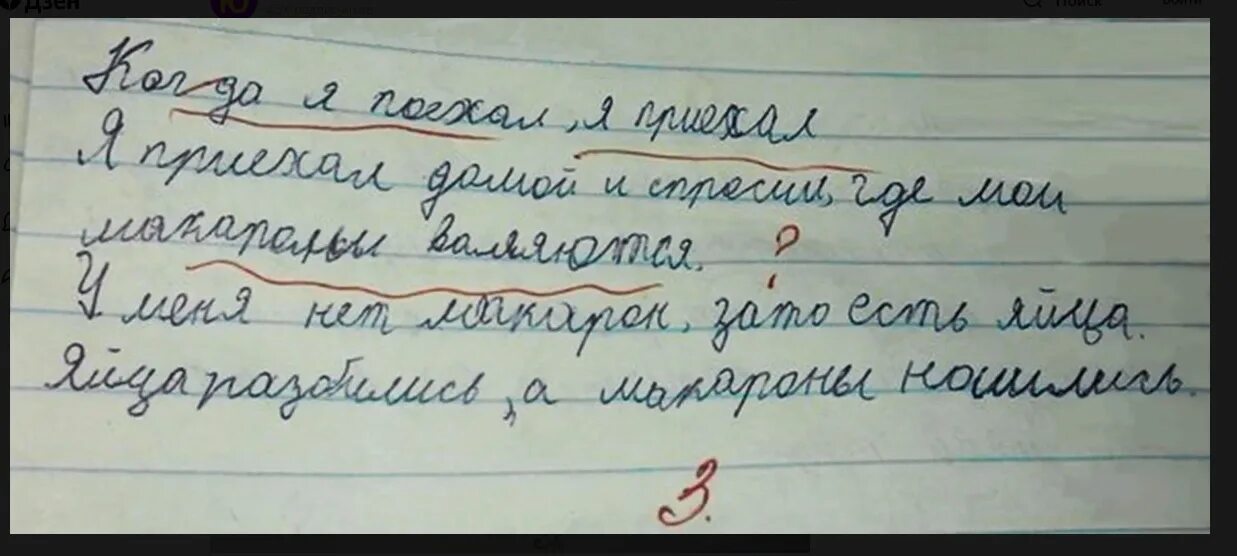 Дзен
Поиск
Войти
Когда я поехал, я приехал
Я приехал домой и спросил, где мои
макароны валяются. ?
У меня нет макарон, зато есть яйца.
Яйца разбились, а макароны нашились.
3.